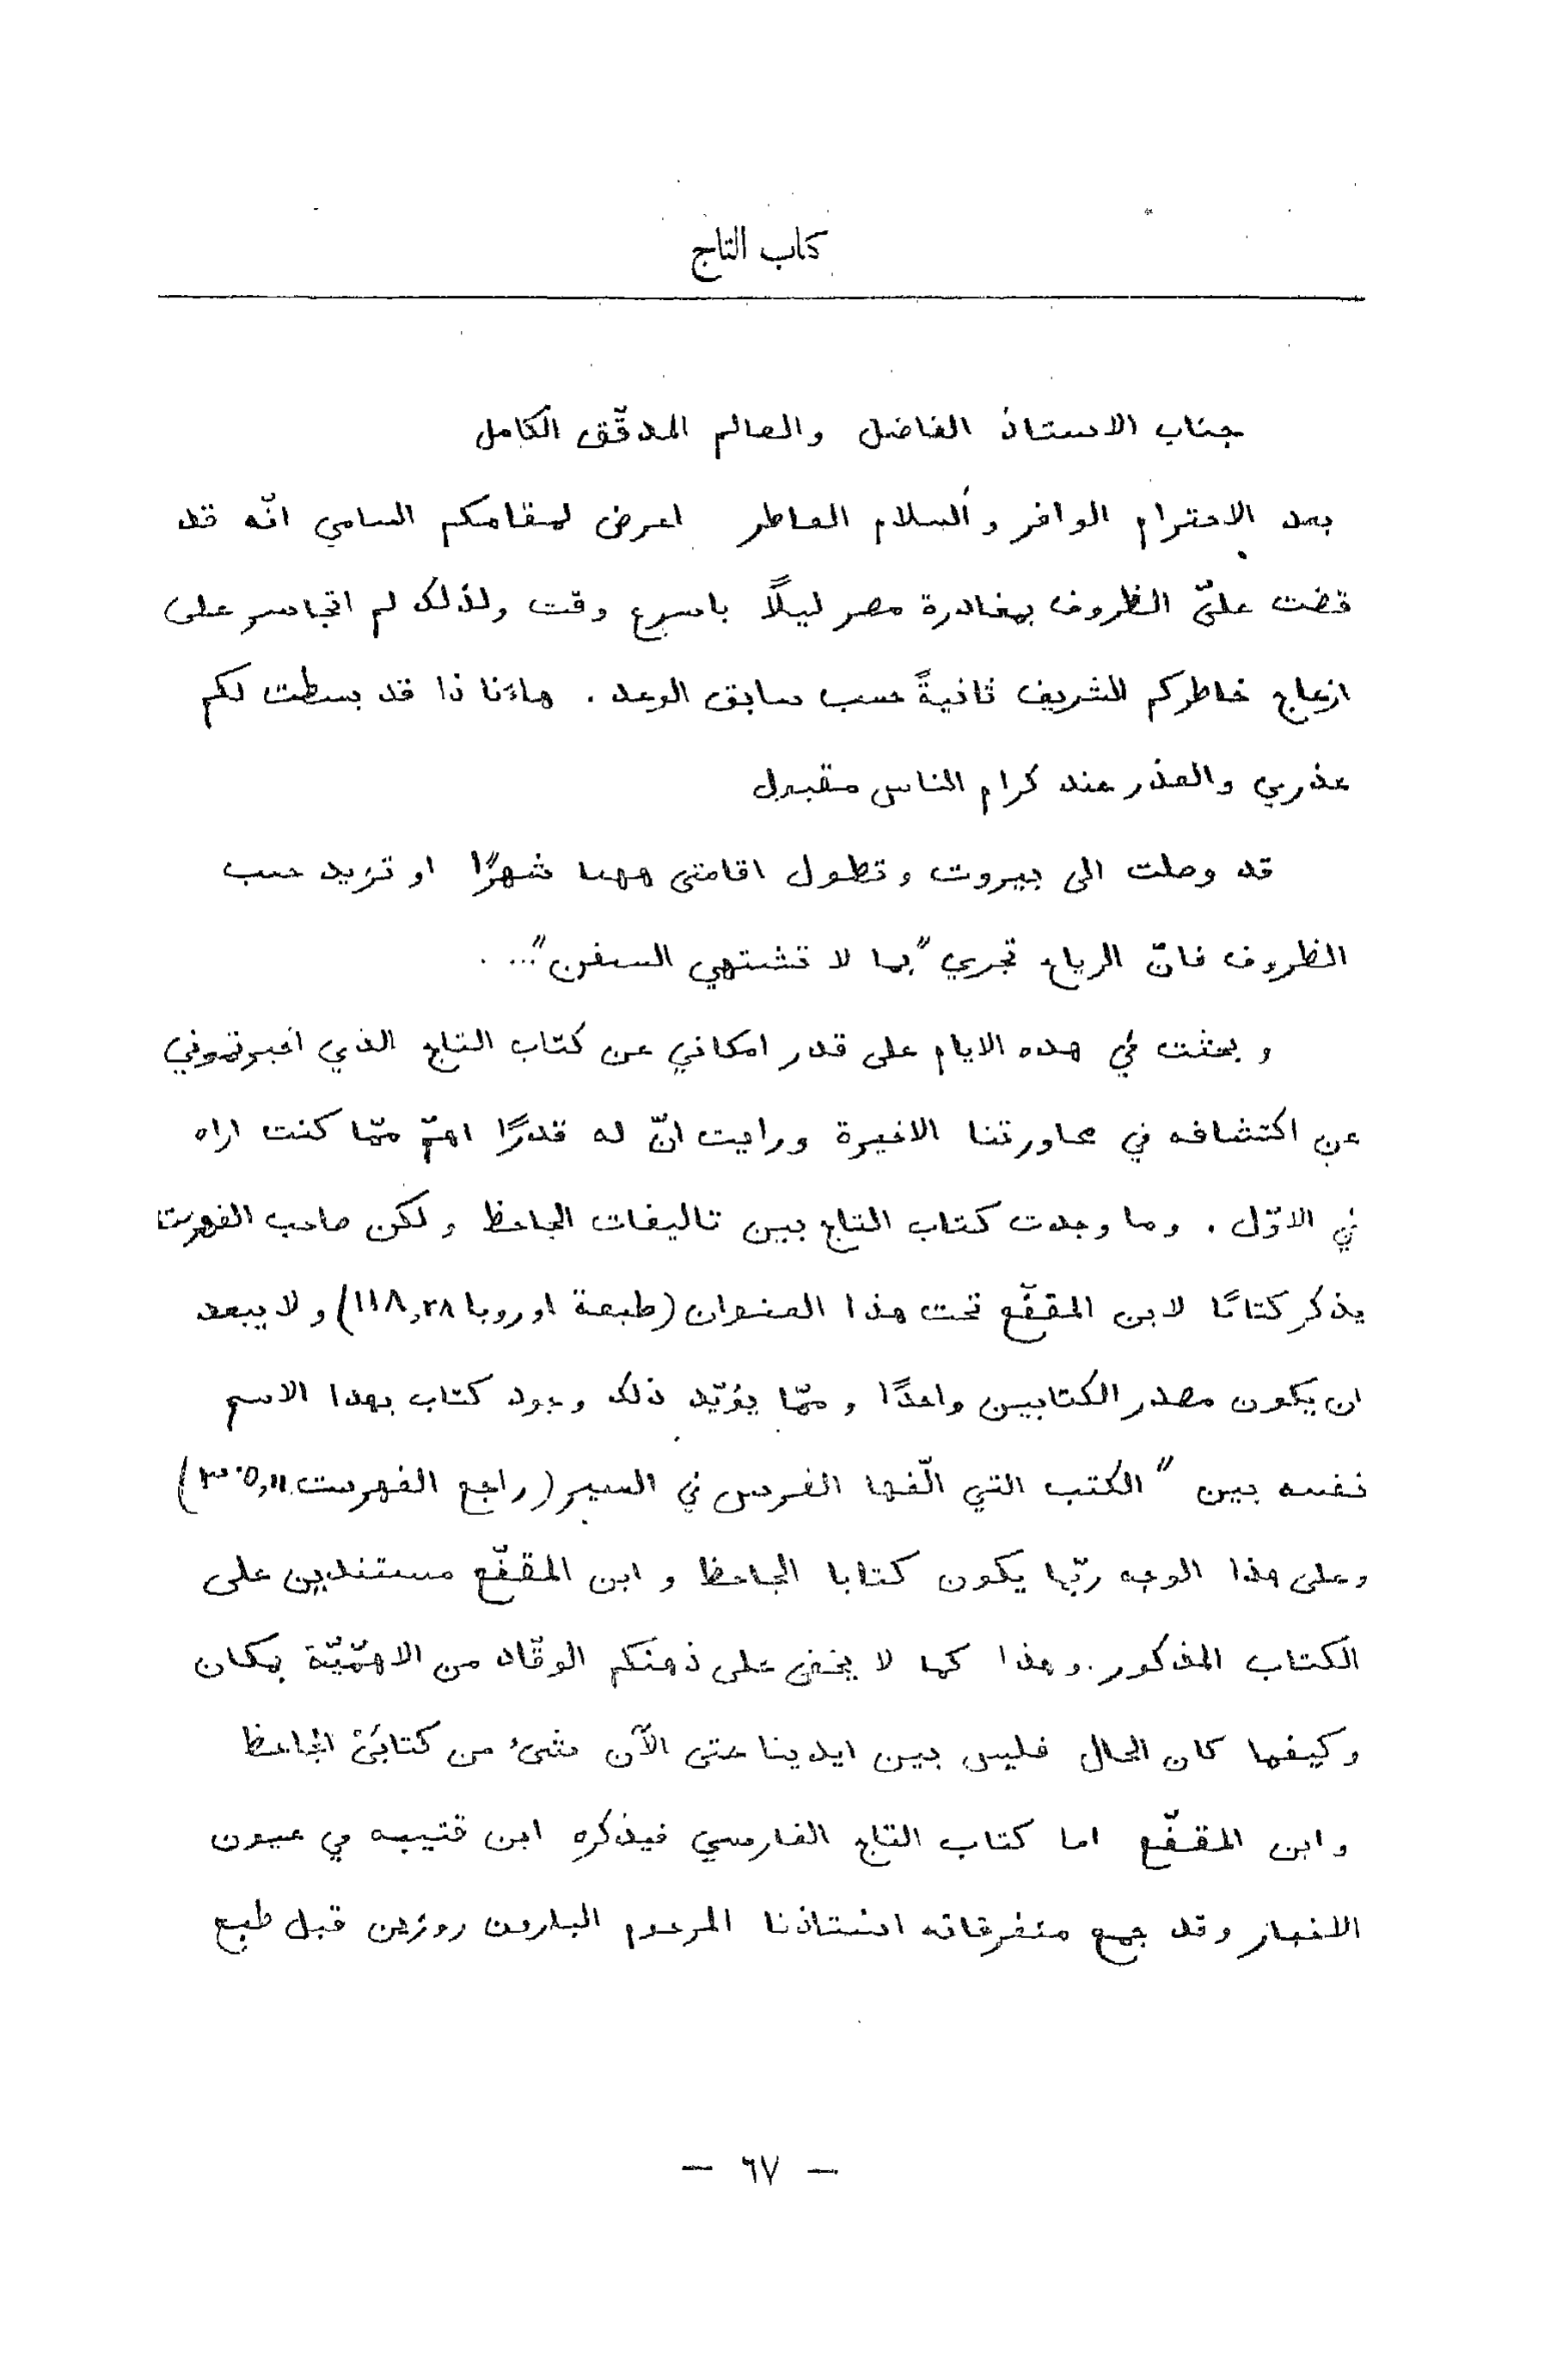 كتاب التاج
جناب الاستاذ الفاضل والعالم المدقّق الكامل
بعد الاحترام الوافر والسلام العاطر اعرض لمقامكم السامي انّه قد
قضت عليّ الظروف بمغادرة مصر ليلًا باسرع وقت ولذلك لم اتجاسر على
ازعاج خاطركم الشريف ثانيةً حسب سابق الوعد . هاءنا ذا قد بسطت لكم
عذري والعذر عند كرام الناس مقبول
قد وصلت الى بيروت وتطول اقامتي ههنا شهرًا او تزيد حسب
الظروف فانّ الرياح تجري "بما لا تشتهي السفن"... .
وبحثت في هذه الايام على قدر امكاني عن كتاب التاج الذي اخبرتموني
عن اكتشافه في محاورتنا الاخيرة ورايت انّ له قدرًا اهمّ ممّا كنت اراه
في الاوّل . وما وجدت كتاب التاج بين تاليفات الجاحظ ولكن صاحب الفهرست
يذكر كتابًا لابن المقفّع تحت هذا العنوان (طبعة اوروبا ١١٨,٢٨) ولا يبعد
ان يكون مصدر الكتابين واحدًا وممّا يؤيّد ذلك وجود كتاب بهذا الاسم
نفسه بين "الكتب التي الّفها الفرس في السير (راجع الفهرست ٣٠٥,١١)
وعلى هذا الوجه ربّما يكون كتابا الجاحظ وابن المقفّع مستندين على
الكتاب المذكور . وهذا كما لا يخفى على ذهنكم الوقّاد من الاهمّيّة بمكان
وكيفما كان الحال فليس بين ايدينا حتى الآن شئ من كتابَيْ الجاحظ
وابن المقفّع اما كتاب التاج الفارسي فيذكره ابن قتيبه في عيون
الاخبار وقد جمع متفرقاته استاذنا المرحوم البارون روزين قبل طبع
— ٦٧ —